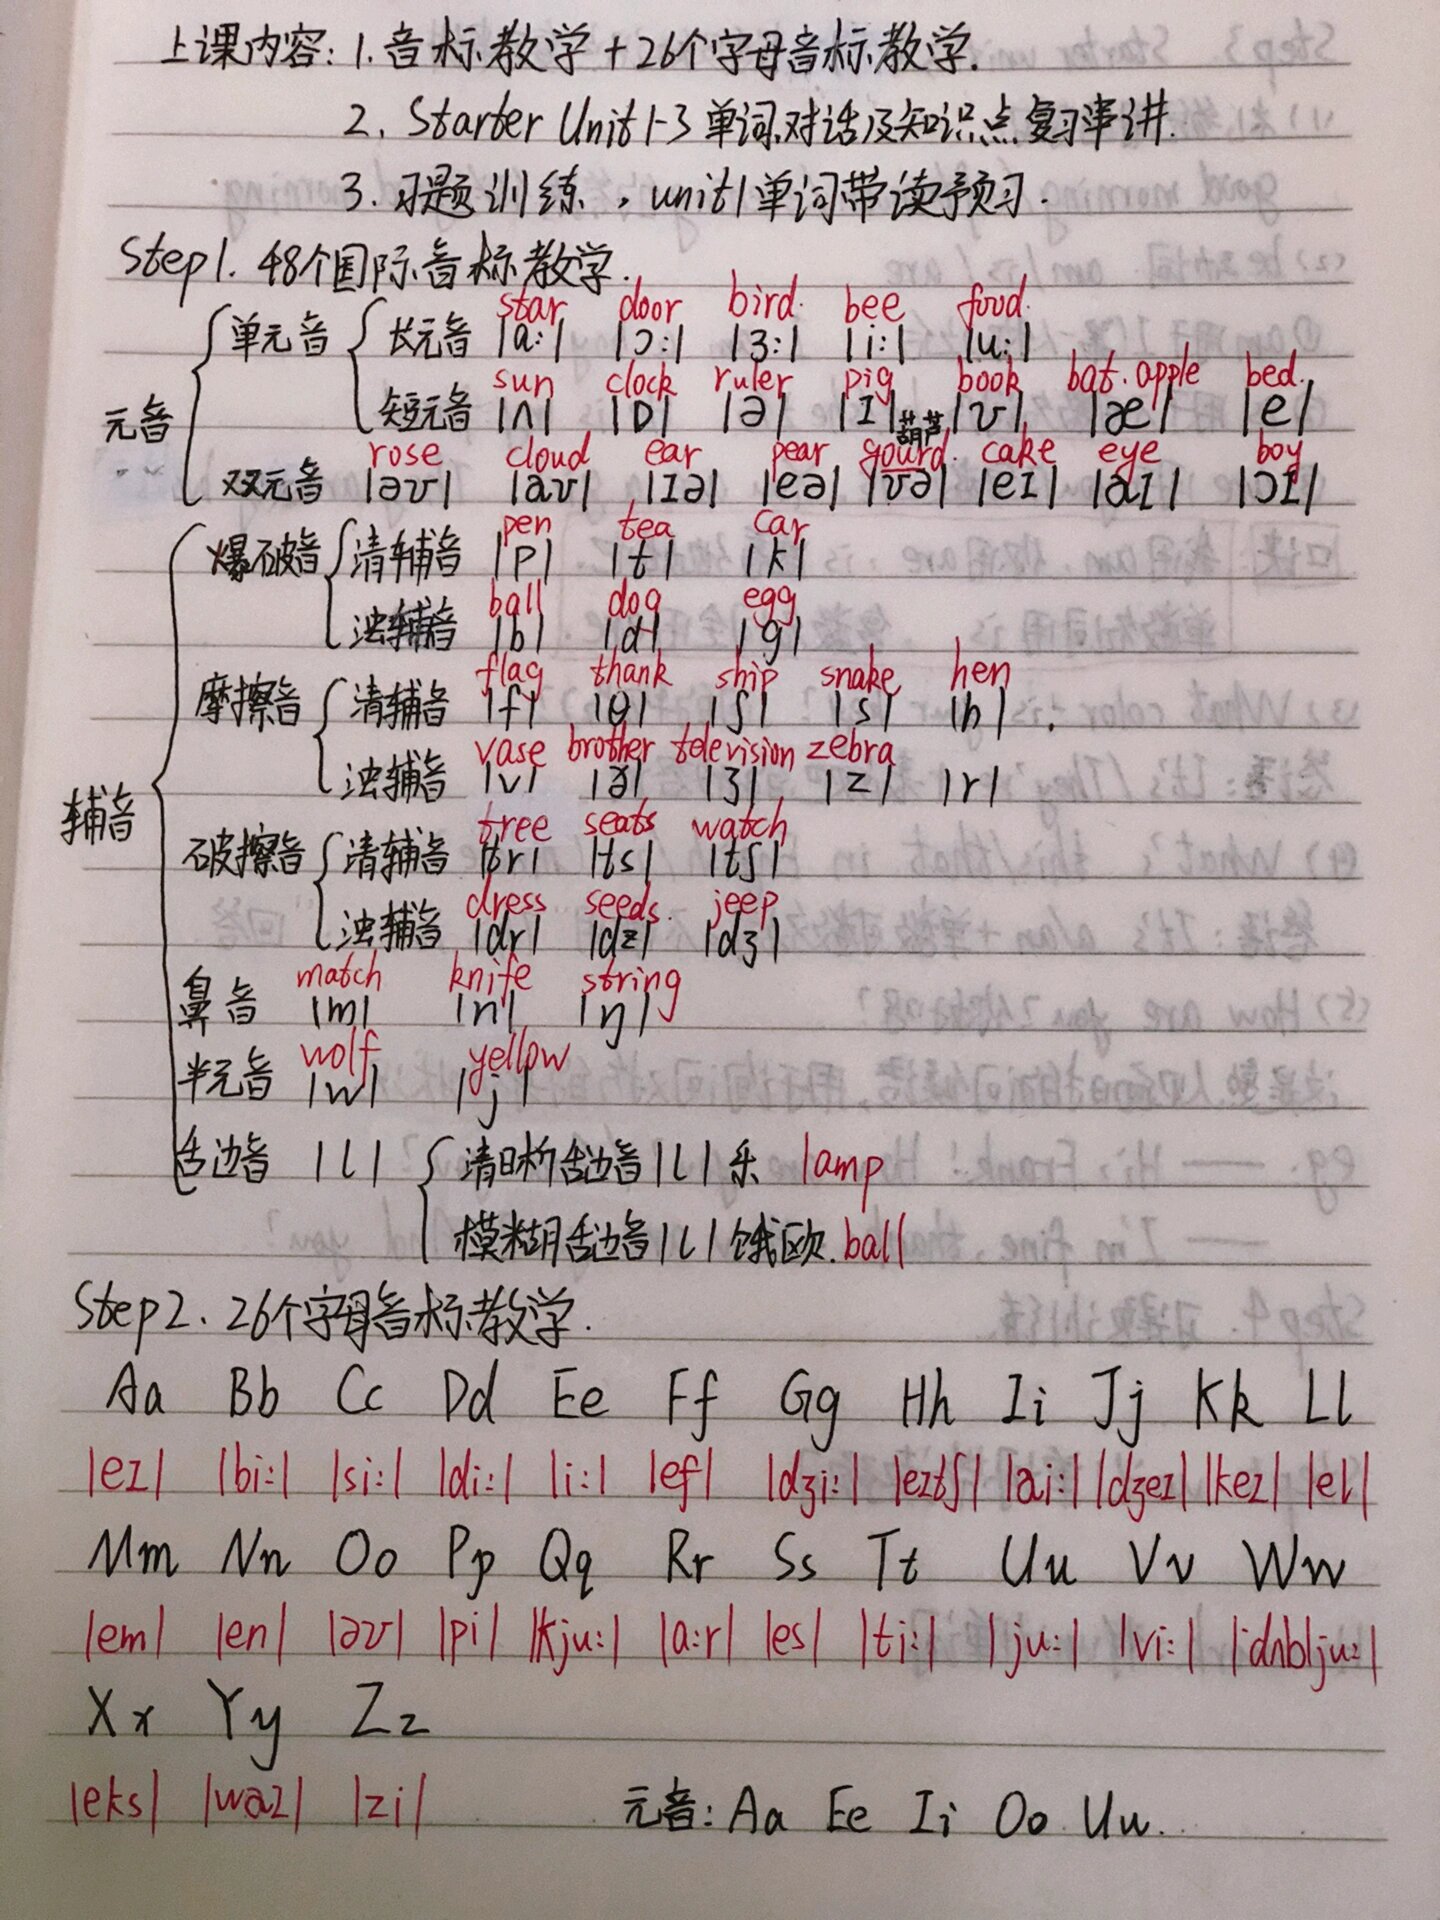 上课内容: 1. 音标教学 + 26个字母音标教学.
2. Starter Unit 1-3 单词、对话及知识点复习串讲.
3. 习题训练, unit1 单词带读预习.
Step1. 48个国际音标教学.
star door bird. bee food.
单元音 长元音 |ɑ:| |ɔ:| |ɜ:| |i:| |u:|
sun clock ruler pig book bat. apple bed.
元音 短元音 |ʌ| |ɒ| |ə| |ɪ| |ʊ| |æ| |e|
葫芦
rose cloud ear pear gourd. cake eye boy
双元音 |əʊ| |aʊ| |ɪə| |eə| |ʊə| |eɪ| |aɪ| |ɔɪ|
pen tea car
爆破音 清辅音 |p| |t| |k|
ball dog egg
浊辅音 |b| |d| |g|
flag thank ship snake hen
摩擦音 清辅音 |f| |θ| |ʃ| |s| |h| .
vase brother television zebra
浊辅音 |v| |ð| |ʒ| |z| |r|
辅音
tree seats watch
破擦音 清辅音 |tr| |ts| |tʃ|
dress seeds. jeep
浊辅音 |dr| |dz| |dʒ|
match knife string
鼻音 |m| |n| |ŋ|
wolf yellow
半元音 |w| |j|
舌边音 |l| 清晰舌边音 |l| 乐 lamp
模糊舌边音 |l| 饿欧. ball
Step2. 26个字母音标教学.
Aa Bb Cc Dd Ee Ff Gg Hh Ii Jj Kk Ll
|eɪ| |bi:| |si:| |di:| |i:| |ef| |dʒi:| |eɪtʃ| |ai:| |dʒeɪ| |keɪ| |el|
Mm Nn Oo Pp Qq Rr Ss Tt Uu Vv Ww
|em| |en| |əʊ| |pi| |kju:| |ɑ:r| |es| |ti:| |ju:| |vi:| |ˈdʌblju:|
Xx Yy Zz
|eks| |waɪ| |zi|
元音: Aa Ee Ii Oo Uu.